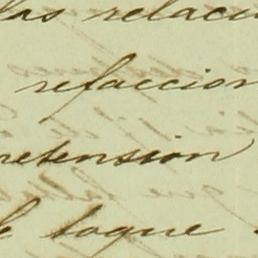 las relaci
refaccion
retension
le toque